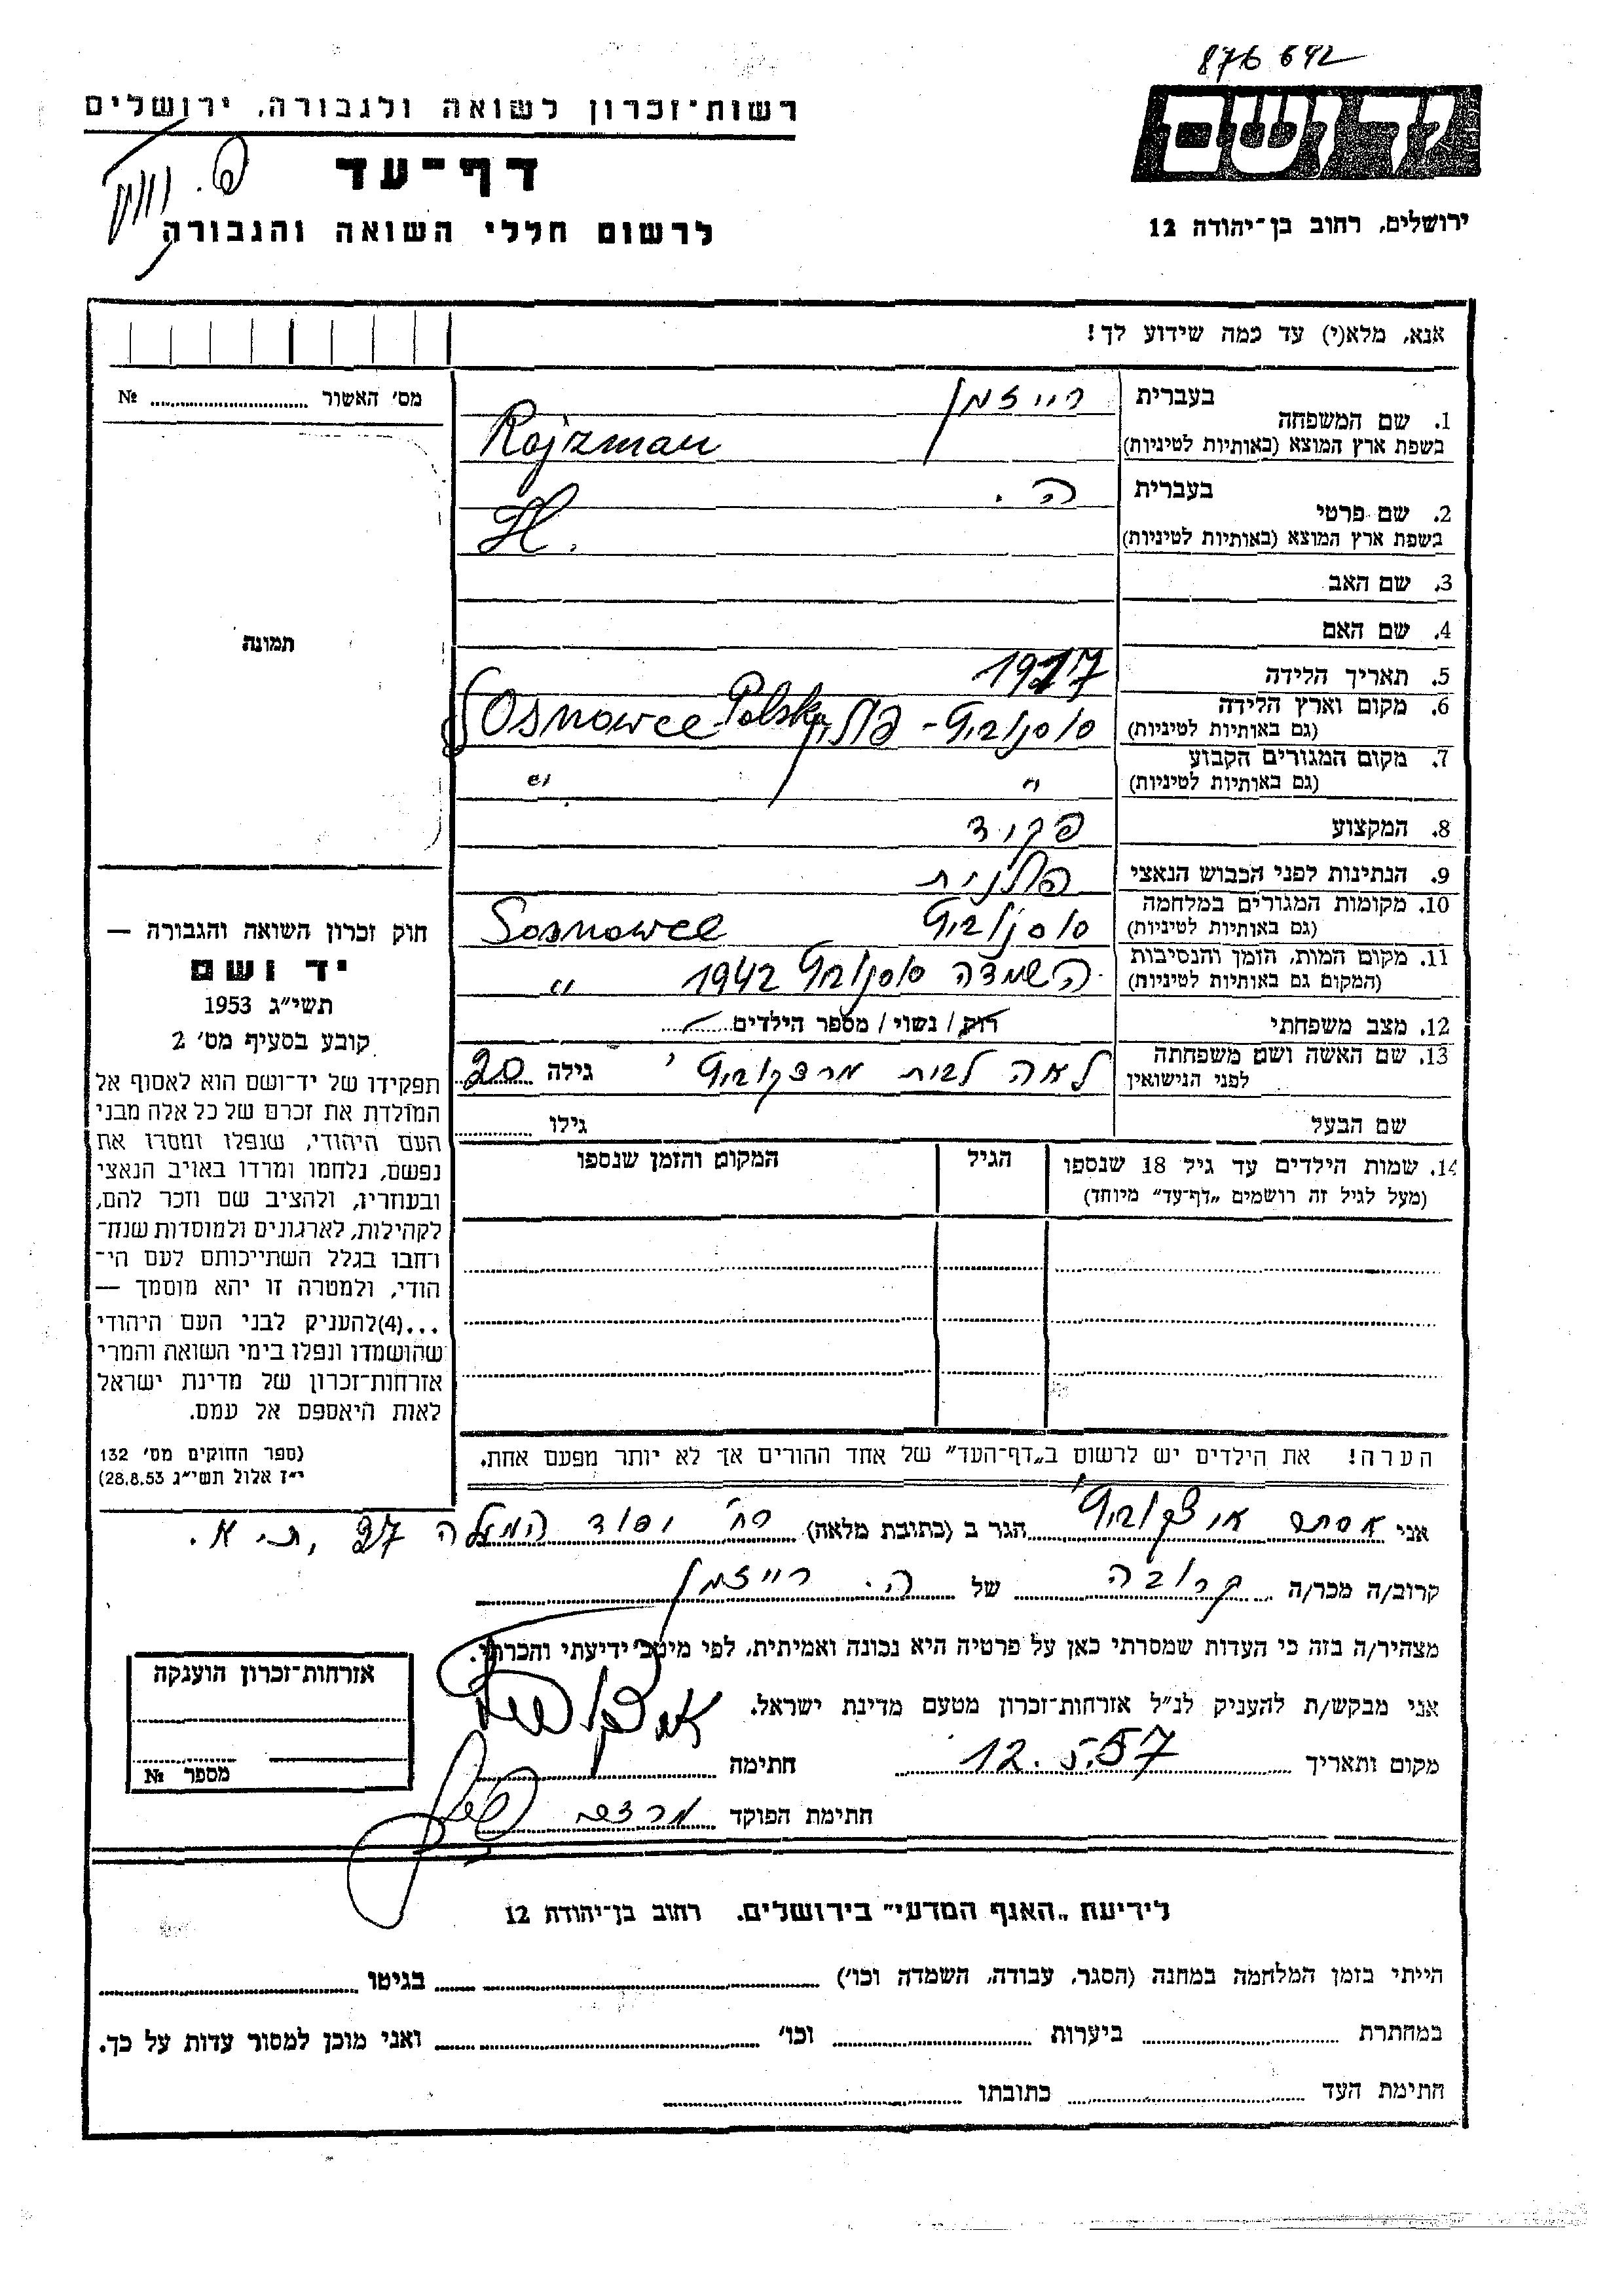 876 692
רשות־זכרון לשואה ולגבורה, ירושלים
יד ושם
דף־עד
לרשום חללי השואה והגבורה
ירושלים, רחוב בן־יהודה 12
אנא, מלא(י) עד כמה שידוע לך!
מס׳ האשור № ........
תמונה
1. שם המשפחה בעברית רייזמן
בשפת ארץ המוצא (באותיות לטיניות) Rojzman
2. שם פרטי בעברית ה.
בשפת ארץ המוצא (באותיות לטיניות) H.
3. שם האב
4. שם האם
5. תאריך הלידה 1917
6. מקום וארץ הלידה (גם באותיות לטיניות) סוסנוביץ - פולין Sosnowce Polska
7. מקום המגורים הקבוע (גם באותיות לטיניות) " "
8. המקצוע פקיד
9. הנתינות לפני הכבוש הנאצי פולנית
10. מקומות המגורים במלחמה (גם באותיות לטיניות) סוסנוביץ Sosnowce
11. מקום המות, הזמן והנסיבות (המקום גם באותיות לטיניות) השמדה סוסנוביץ 1942 "
12. מצב משפחתי רווק / נשוי / מספר הילדים ........
13. שם האשה ושם משפחתה לפני הנישואין לאה לבית גילה 30
שם הבעל גילו ........
14. שמות הילדים עד גיל 18 שנספו הגיל המקום והזמן שנספו
(מעל לגיל זה רושמים „דף־עד” מיוחד)
חוק זכרון השואה והגבורה —
יד ושם
תשי״ג 1953
קובע בסעיף מס׳ 2
תפקידו של יד־ושם הוא לאסוף אל
המולדת את זכרם של כל אלה מבני
העם היהודי, שנפלו ומסרו את
נפשם, נלחמו ומרדו באויב הנאצי
ובעוזריו, ולהציב שם וזכר להם,
לקהילות, לארגונים ולמוסדות שנח־
רחבו בגלל השתייכותם לעם הי־
הודי, ולמטרה זו יהא מוסמך —
...(4)להעניק לבני העם היהודי
שהושמדו ונפלו בימי השואה והמרי
אזרחות־זכרון של מדינת ישראל
לאות היאספם אל עמם.
(ספר החוקים מס׳ 132
י״ז אלול תשי״ג 28.8.53)
הערה! את הילדים יש לרשום ב„דף־העד” של אחד ההורים אך לא יותר מפעם אחת.
אני אסתר הגר ב (כתובת מלאה) רח׳ יסוד המעלה 37, ת״א.
קרוב/ה מכר/ה קרובה של ה. רייזמן
מצהיר/ה בזה כי העדות שמסרתי כאן על פרטיה היא נכונה ואמיתית, לפי מיטב ידיעתי והכרתי.
אני מבקש/ת להעניק לנ״ל אזרחות־זכרון מטעם מדינת ישראל.
מקום ותאריך 12.5.57 חתימה
חתימת הפוקד
אזרחות־זכרון הוענקה
מספר №
לידיעת „האגף המדעי” בירושלים, רחוב בן־יהודה 12
הייתי בזמן המלחמה במחנה (הסגר, עבודה, השמדה וכו׳) ........ בגיטו ........
במחתרת ........ ביערות ........ וכו׳ ........ ואני מוכן למסור עדות על כך.
חתימת העד ........ כתובתו ........